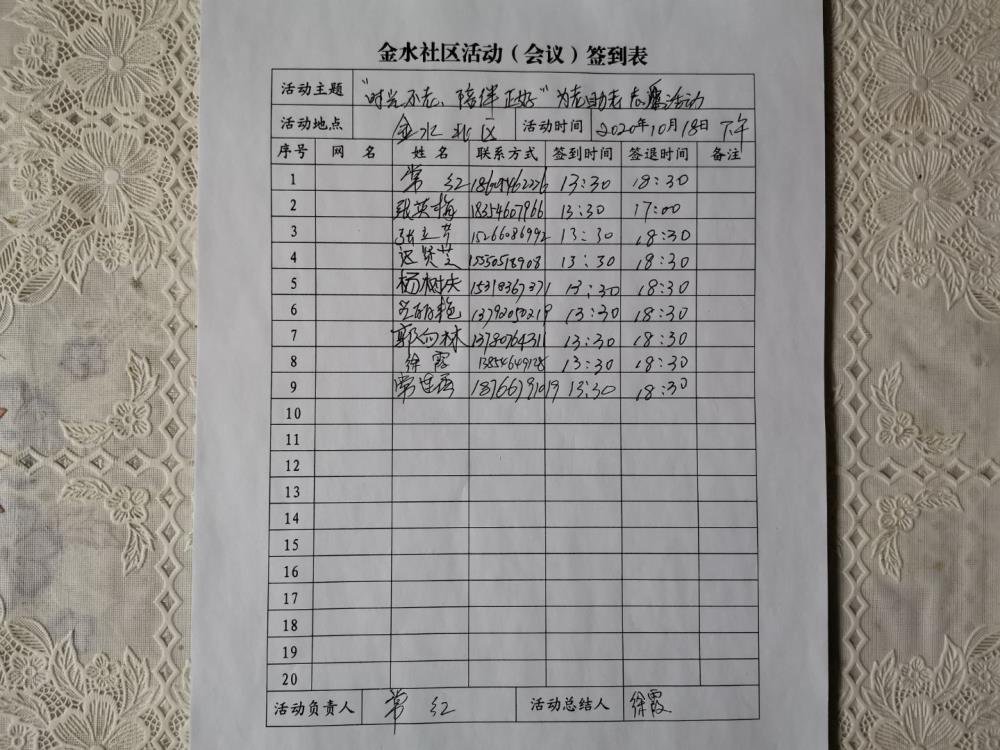 金水社区活动（会议）签到表
活动主题 “时光不老、陪伴正好”为老助老志愿活动
活动地点 金水北区 活动时间 2020年10月18日 下午
序号 网 名 姓 名 联系方式 签到时间 签退时间 备注
1 常 红 13:30 18:30
2 张英梅 18354607966 13:30 17:00
3 15266086992 13:30 18:30
4 13:30 18:30
5 杨树夫 13:30 18:30
6 13792050219 13:30 18:30
7 郭向林 13780764311 13:30 18:30
8 徐霞 13854649128 13:30 18:30
9 13:30 18:30
10
11
12
13
14
15
16
17
18
19
20
活动负责人 常 红 活动总结人 徐霞